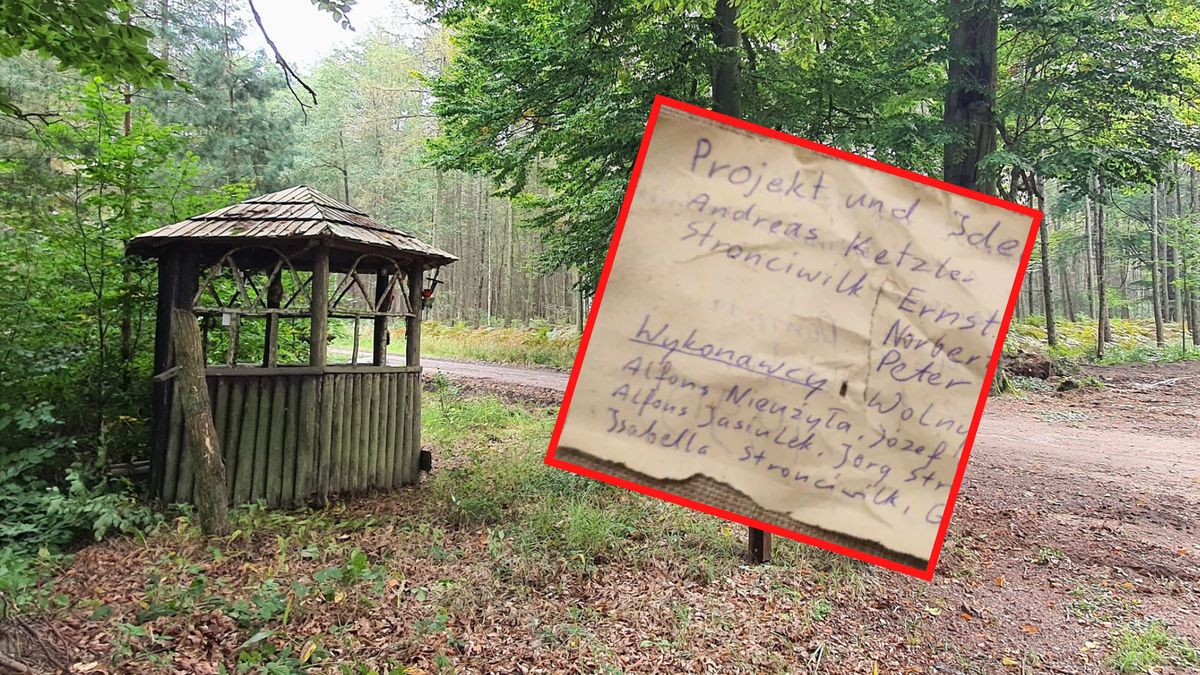 Projekt und Ide
Andreas Ketzler Ernst
Stronciwilk Norber
Peter
Wykonawcy: Wolnu
Alfons Nieużyła, Józef
Alfons Jasiulek, Jörg Str
Isabella Stronciwilk, G